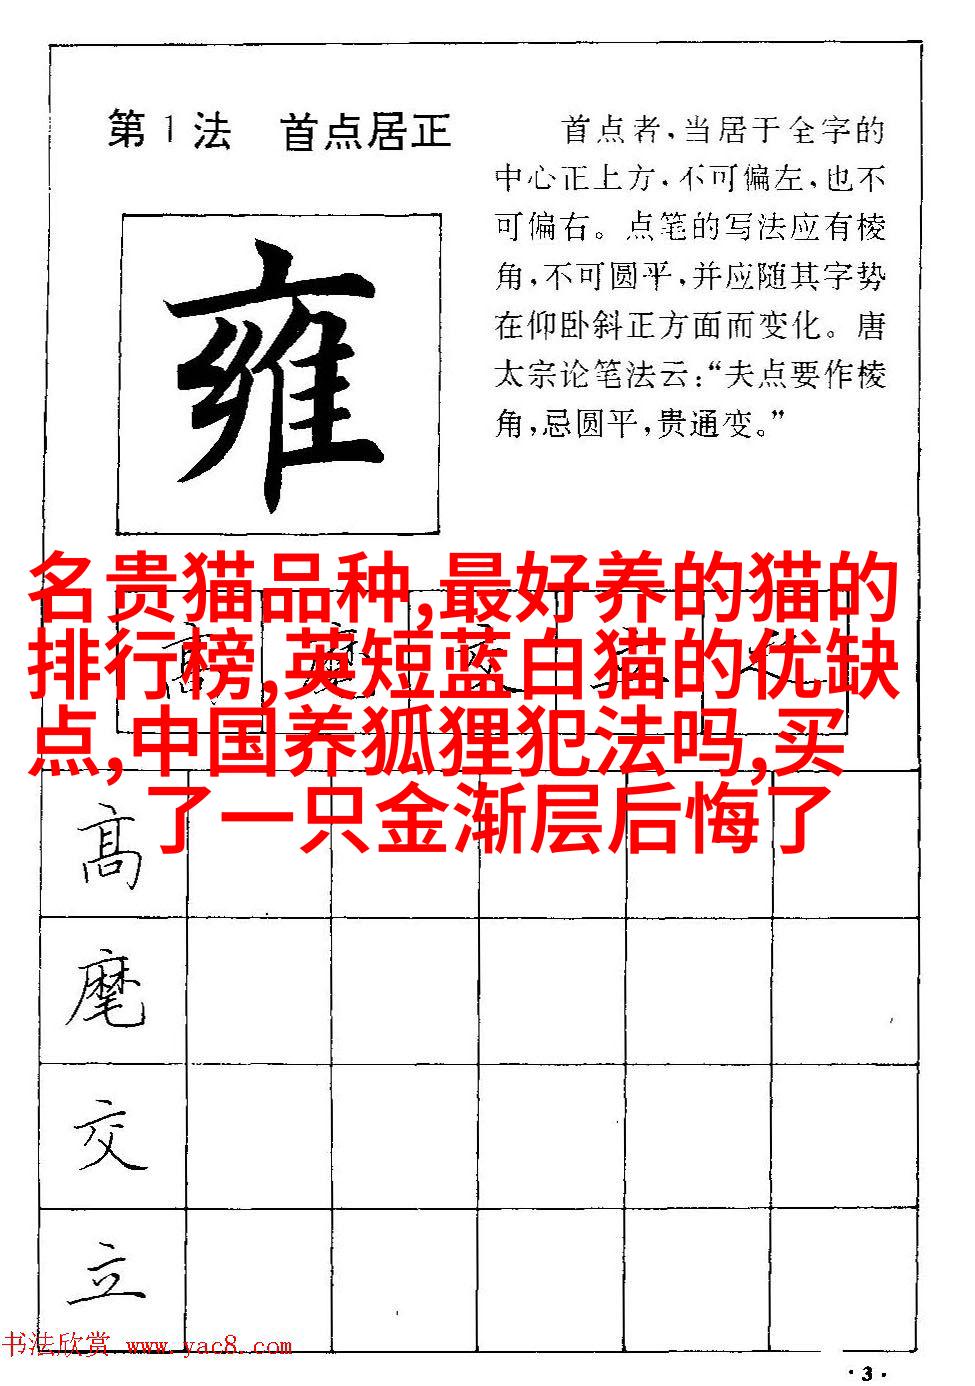 第1法 首点居正
首点者,当居于全字的
中心正上方,不可偏左,也不
可偏右。点笔的写法应有棱
角,不可圆平,并应随其字势
在仰卧斜正方面而变化。唐
太宗论笔法云:“夫点要作棱
角,忌圆平,贵通变。”
雍
名贵猫品种,最好养的猫的
排行榜,英短蓝白猫的优缺
点,中国养狐狸犯法吗,买
了一只金渐层后悔了
高 麾 交 立 之
高
麾
交
立
书法欣赏 www.yac8.com
·3·